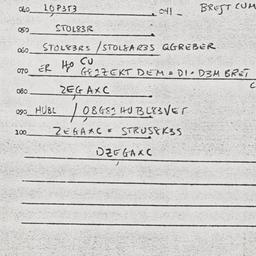 040 LOP3T3 041_ BREJT CUM
050 STOL83R
060 STOL83RS / STOL8AR3S GGREBER
070 ER HO CU GE8ZEKT DEM = D1 · D3M BRET
080 ZEGAXC
090 HUBL / OBGE8 HUBL83VET
100 ZEGAXC = STRUS8K3S
DZEGAXC